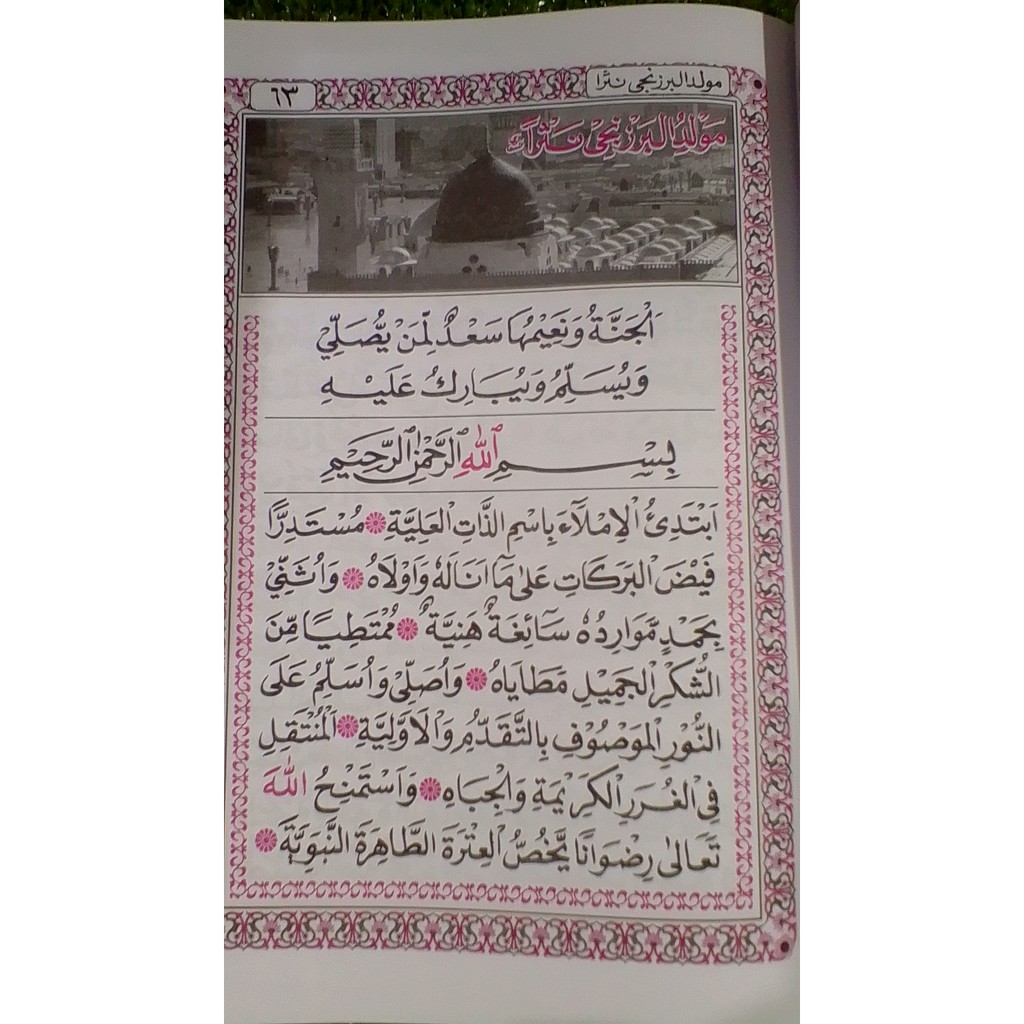 مولد البرزنجي نثرا
٦٣
مَوْلِدُ الْبَرْزَنْجِيْ نَثْرًا
اَلْجَنَّةُ وَنَعِيْمُهَا سَعْدٌ لِّمَنْ يُّصَلِّيْ
وَيُسَلِّمُ وَيُبَارِكُ عَلَيْهِ
بِسْمِ ٱللّٰهِ ٱلرَّحْمٰنِ ٱلرَّحِيْمِ
اَبْتَدِئُ الْاِمْلَآءَ بِاسْمِ الذَّاتِ الْعَلِيَّةِ ❁ مُسْتَدِرًّا
فَيْضَ الْبَرَكَاتِ عَلٰى مَآ اَنَالَهُ وَاَوْلَاهُ ❁ وَاُثَنِّيْ
بِحَمْدٍ مَّوَارِدُهُ سَآئِغَةٌ هَنِيَّةٌ ❁ مُمْتَطِيًا مِّنَ
الشُّكْرِ الْجَمِيْلِ مَطَايَاهُ ❁ وَاُصَلِّيْ وَاُسَلِّمُ عَلَى
النُّوْرِ الْمَوْصُوْفِ بِالتَّقَدُّمِ وَالْاَوَّلِيَّةِ ❁ اَلْمُنْتَقِلِ
فِى الْغُرَرِ الْكَرِيْمَةِ وَالْجِبَاهِ ❁ وَاَسْتَمْنِحُ اللّٰهَ
تَعَالٰى رِضْوَانًا يَّخُصُّ الْعِتْرَةَ الطَّاهِرَةَ النَّبَوِيَّةَ ❁